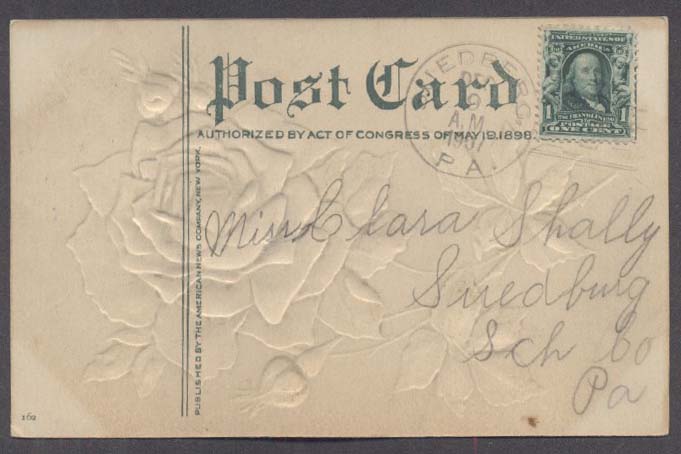 Post Card
AUTHORIZED BY ACT OF CONGRESS OF MAY 19, 1898.
PUBLISHED BY THE AMERICAN NEWS COMPANY, NEW YORK.
A.M.
1907
PA.
UNITED STATES OF
AMERICA
1 1
POSTAGE
ONE CENT
Miss Clara Shally
Suedburg
Sch Co
Pa
162